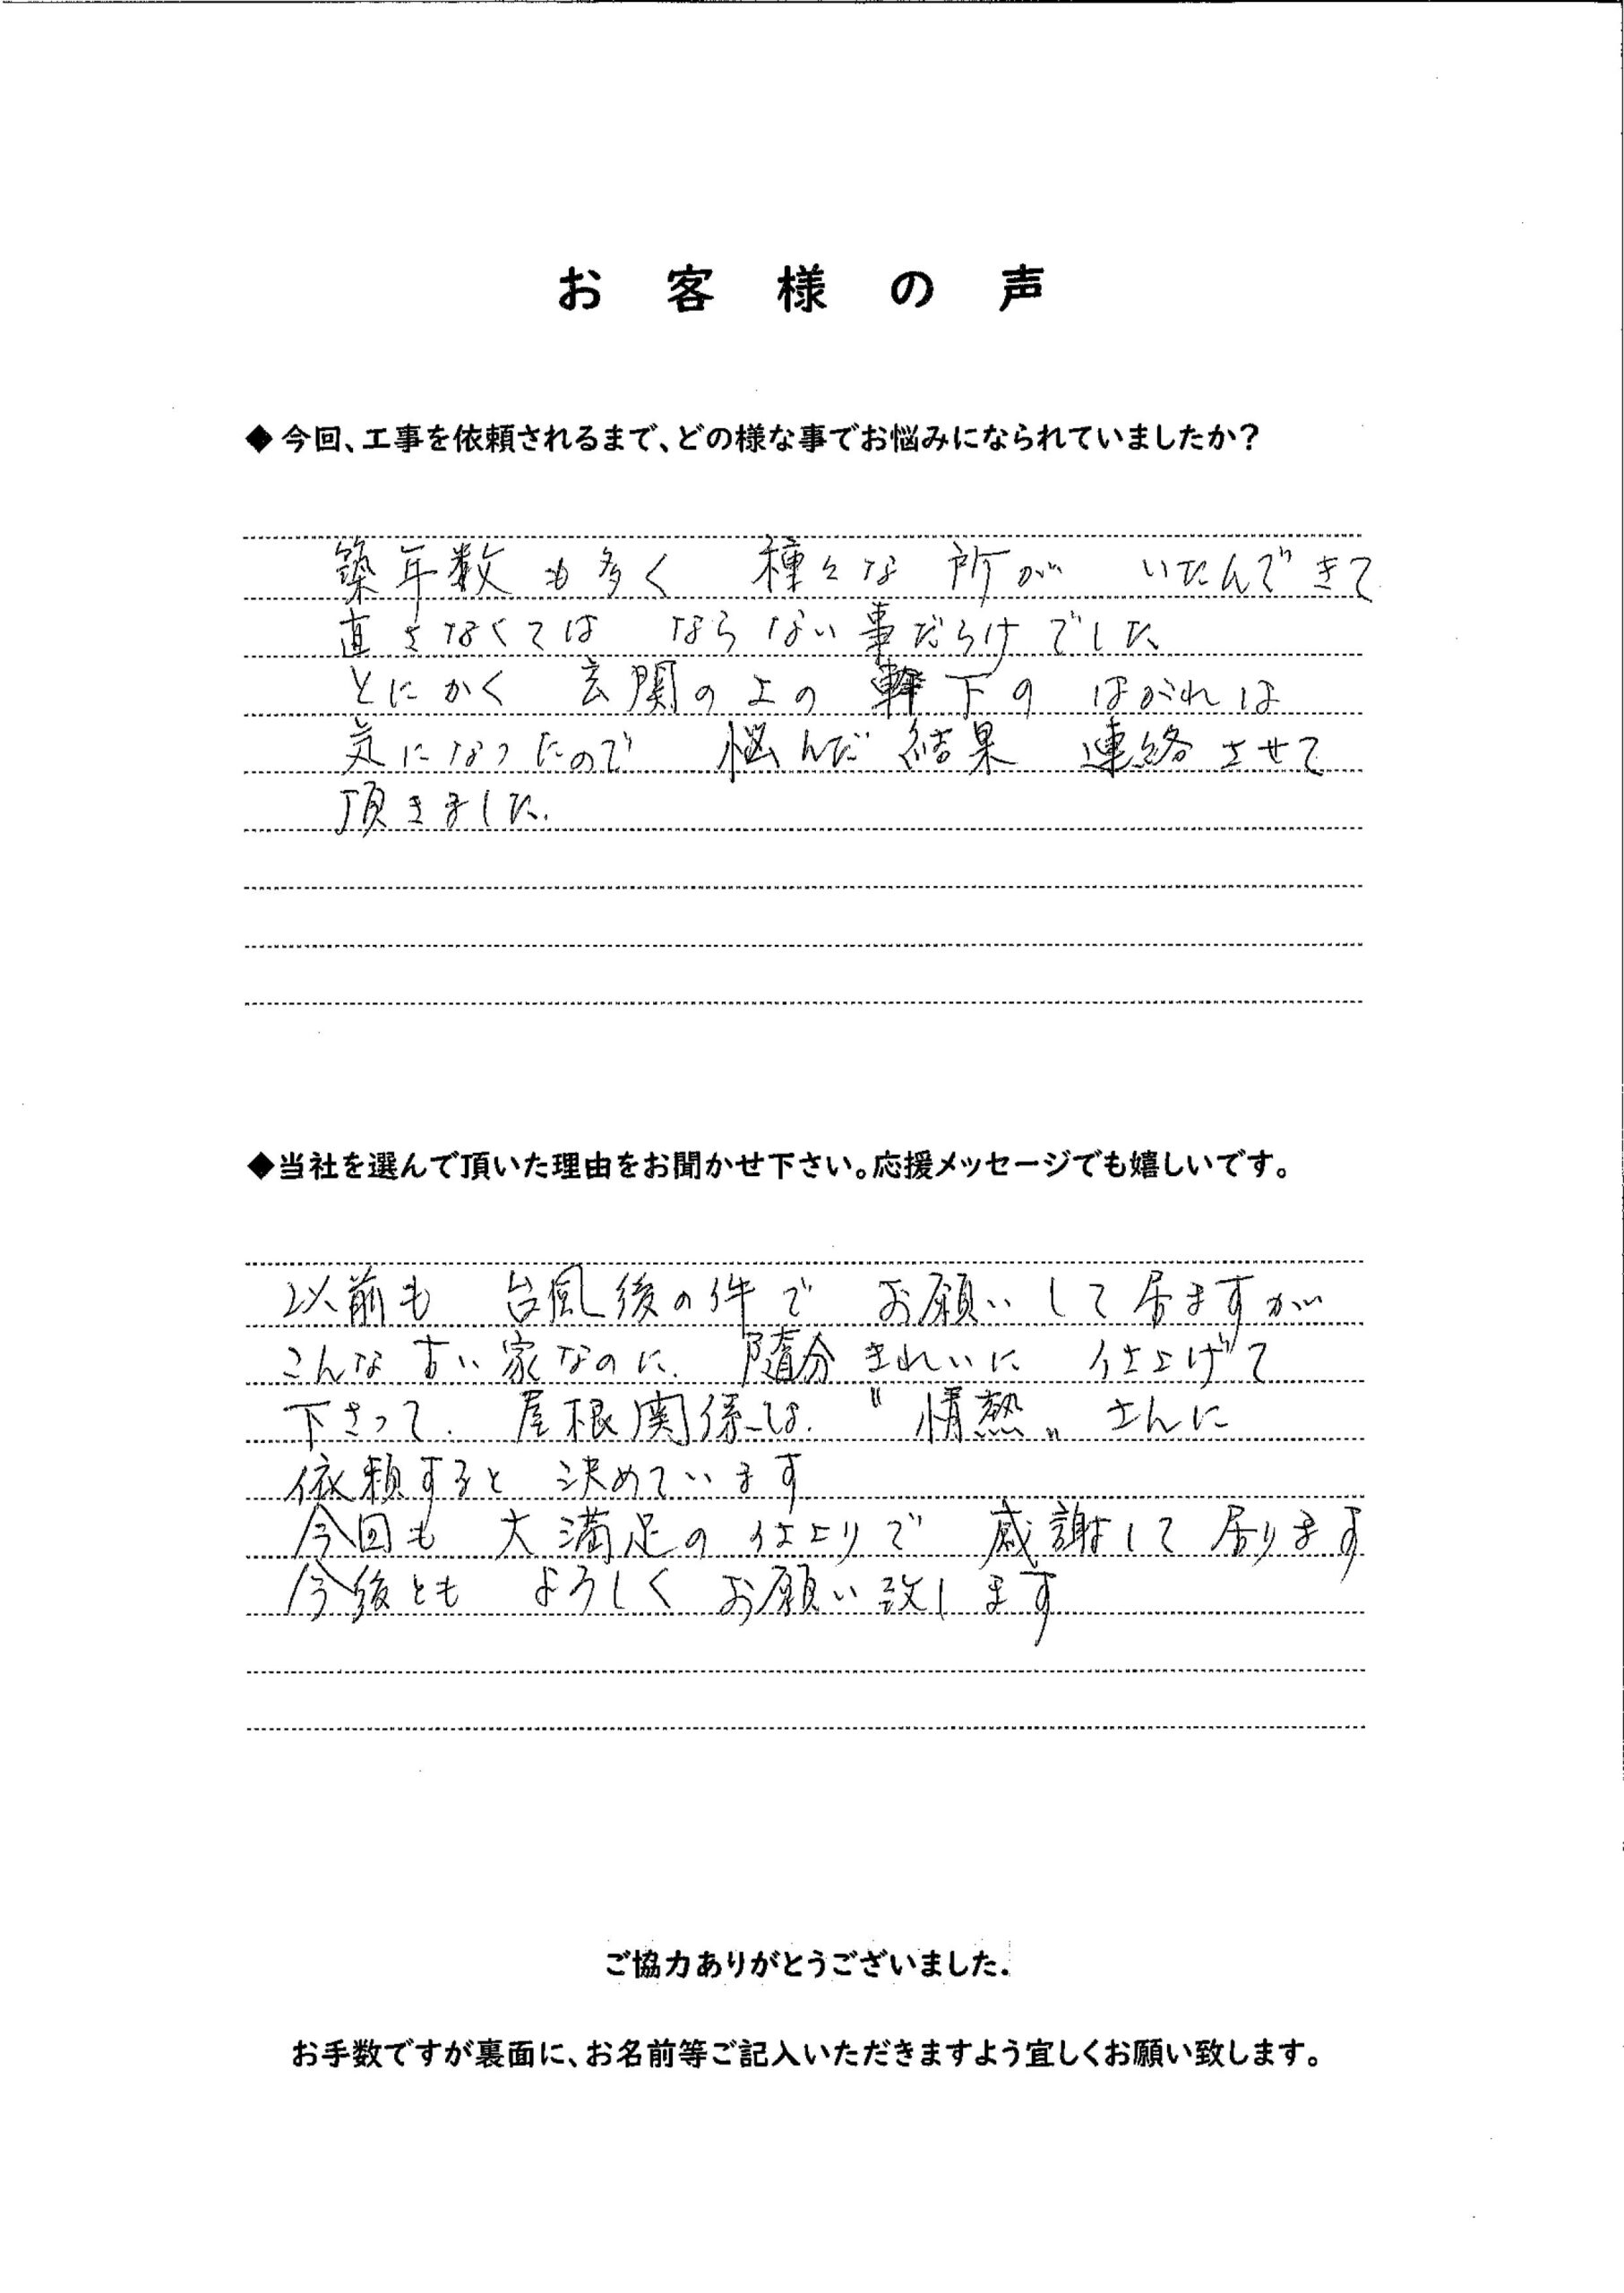 お客様の声
◆今回、工事を依頼されるまで、どの様な事でお悩みになられていましたか?
築年数も多く 種々な所が いたんできて
直さなくては ならない事だらけでした
とにかく 玄関の上の 軒下の はがれは
気になったので 悩んだ結果 連絡させて
頂きました.
◆当社を選んで頂いた理由をお聞かせ下さい。応援メッセージでも嬉しいです。
以前も 台風後の件で お願いして居ますが
こんな古い家なのに. 随分きれいに 仕上げて
下さって. 屋根関係は. 〝情熱〟さんに
依頼すると 決めています
今回も 大満足の 仕上りで 感謝して居ります
今後とも よろしく お願い致します
ご協力ありがとうございました.
お手数ですが裏面に、お名前等ご記入いただきますよう宜しくお願い致します。